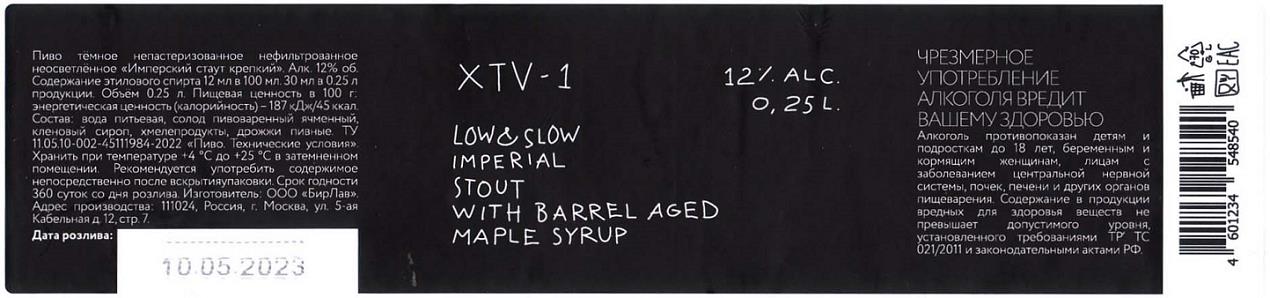 Пиво тёмное непастеризованное нефильтрованное
неосветлённое «Имперский стаут крепкий». Алк. 12% об.
Содержание этилового спирта 12 мл в 100 мл. 30 мл в 0.25 л
продукции. Объём 0.25 л. Пищевая ценность в 100 г:
энергетическая ценность (калорийность) – 187 кДж/45 ккал.
Состав: вода питьевая, солод пивоваренный ячменный,
кленовый сироп, хмелепродукты, дрожжи пивные. ТУ
11.05.10-002-45111984-2022 «Пиво. Технические условия».
Хранить при температуре +4 °С до +25 °С в затемненном
помещении. Рекомендуется употребить содержимое
непосредственно после вскрытияупаковки. Срок годности
360 суток со дня розлива. Изготовитель: ООО «БирЛав».
Адрес производства: 111024, Россия, г. Москва, ул. 5-ая
Кабельная д. 12, стр. 7.
Дата розлива:
10.05.2023
XTV-1
LOW & SLOW
IMPERIAL
STOUT
WITH BARREL AGED
MAPLE SYRUP
12% ALC.
0,25 L.
ЧРЕЗМЕРНОЕ
УПОТРЕБЛЕНИЕ
АЛКОГОЛЯ ВРЕДИТ
ВАШЕМУ ЗДОРОВЬЮ
Алкоголь противопоказан детям и
подросткам до 18 лет, беременным и
кормящим женщинам, лицам с
заболеванием центральной нервной
системы, почек, печени и других органов
пищеварения. Содержание в продукции
вредных для здоровья веществ не
превышает допустимого уровня,
установленного требованиями ТР ТС
021/2011 и законодательными актами РФ.
4 601234 548540
70
GL
EAC